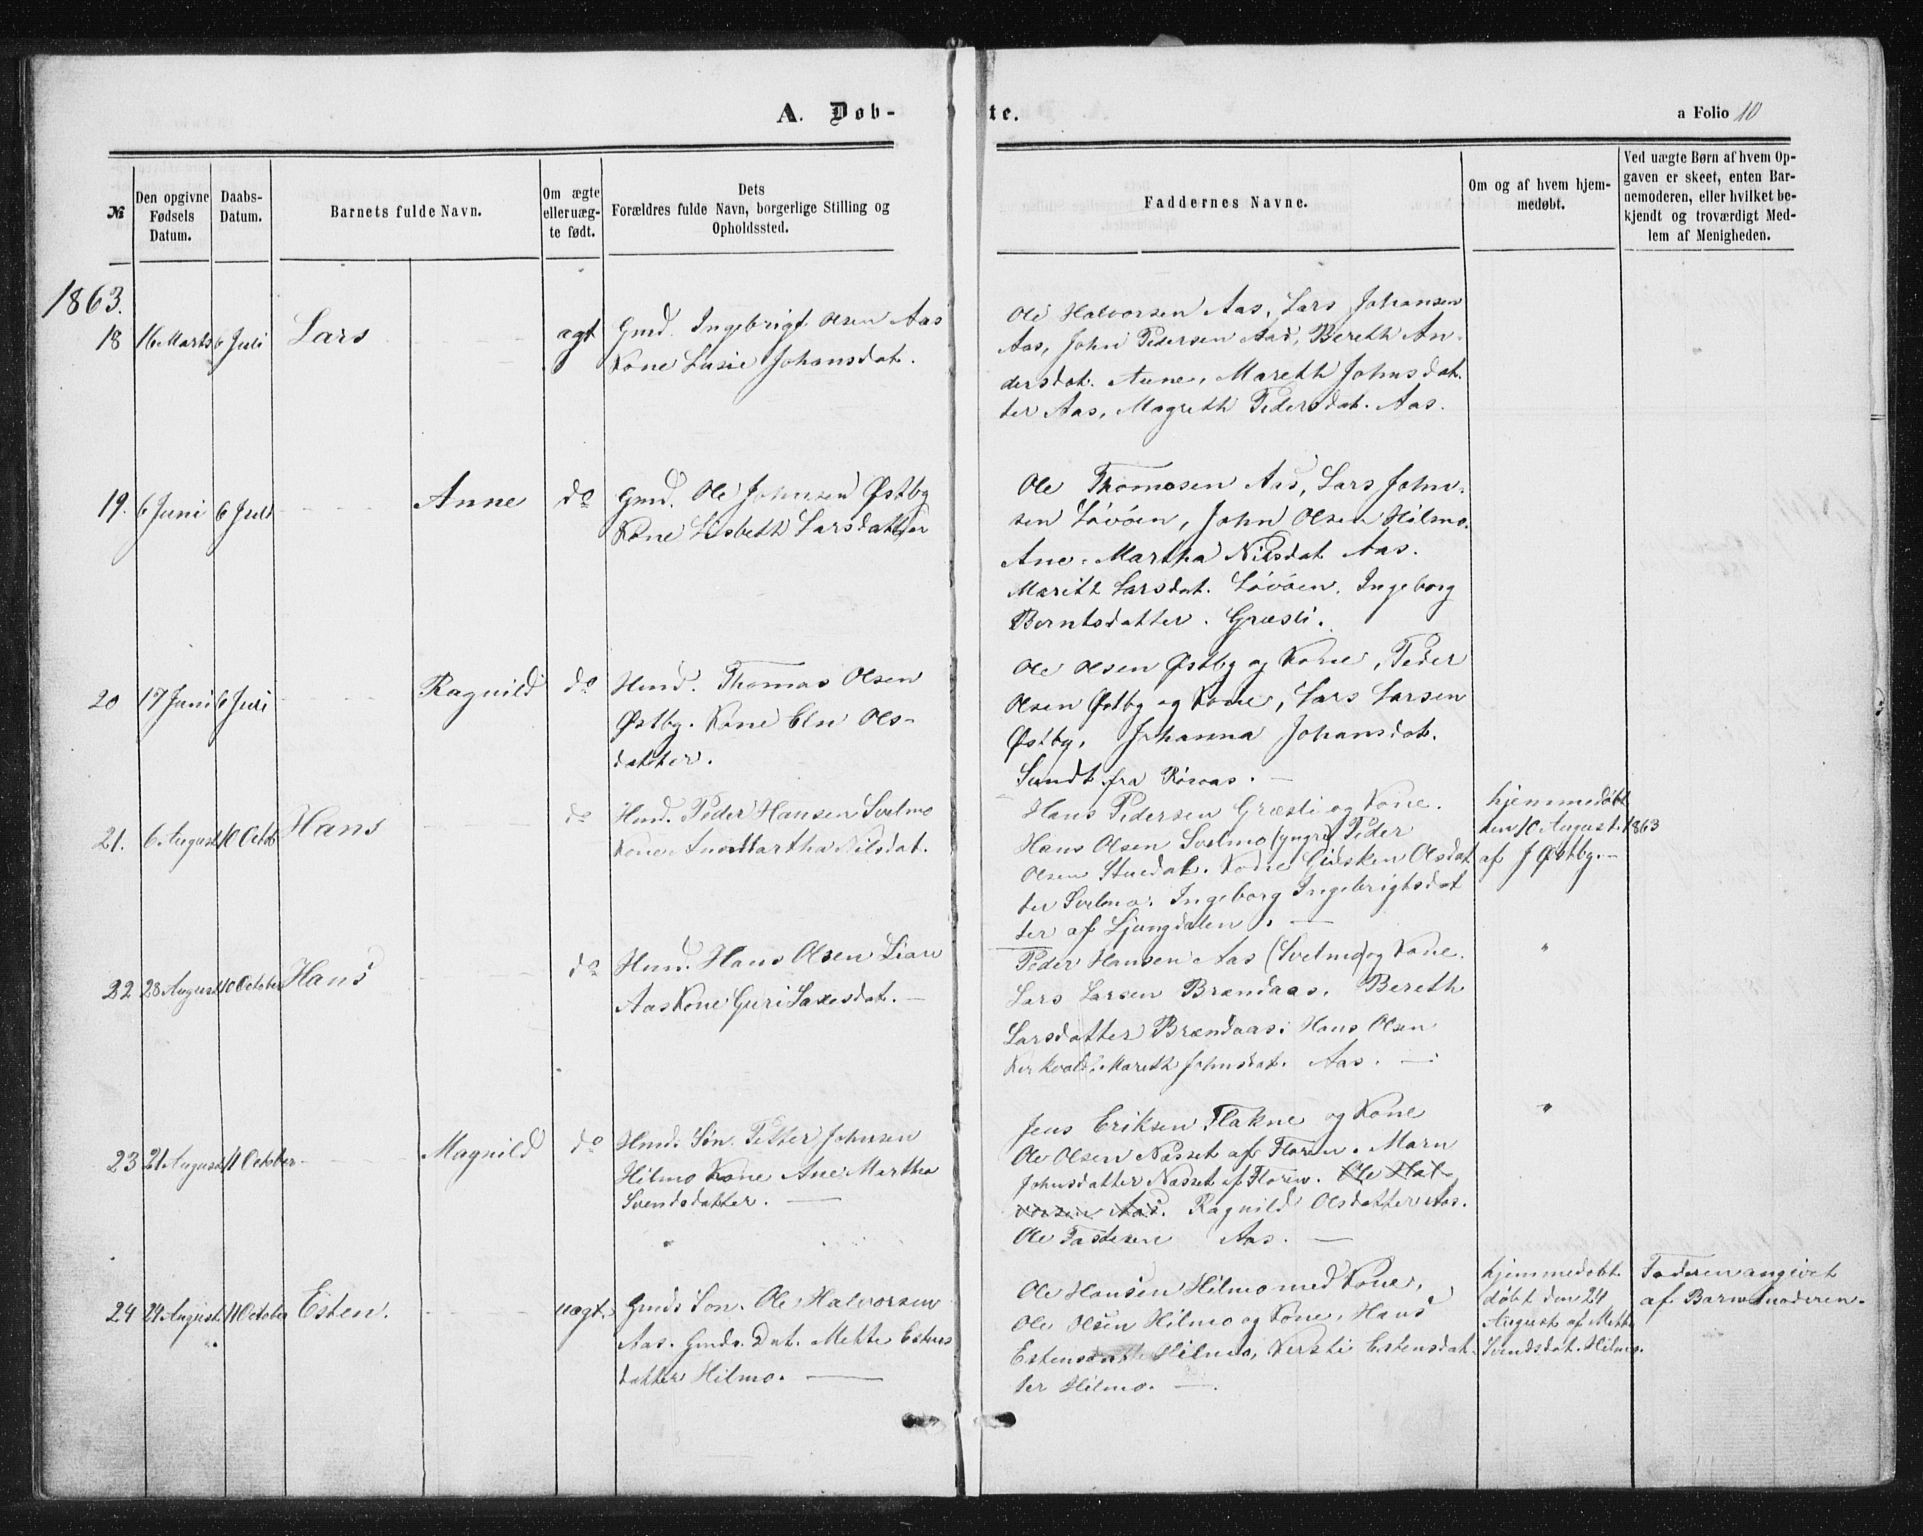 A. Døb-
te.
a Folio 10
№
Den opgivne Fødsels Datum.
Daabs-Datum.
Barnets fulde Navn.
Om ægte eller uæg-te født.
Dets Forældres fulde Navn, borgerlige Stilling og Opholdssted.
Faddernes Navne.
Om og af hvem hjem-medøbt.
Ved uægte Børn af hvem Op-
gaven er skeet, enten Bar-
nemoderen, eller hvilket be-
kjendt og troværdigt Med-
lem af Menigheden.
1863.
18 16 Marts 6 Juli Lars ægt Gmd. Ingebrigt Olsen Aas
Kone Lusie Johansdat.
Ole Halvorsen Aas, Lars Johansen
Aas, John Pedersen Aas, Bereth An-
dersdat. Aune, Mareth Johnsdat-
ter Aas, Magreth Pedersdat. Aas.
19. 6 Juni 6 Juli Anne do Gmd. Ole Johnsen Østby
Kone Lisbeth Larsdatter
Ole Thomasen Aas, Lars John-
sen Løvøen, John Olsen Hilmo.
Ane Martha Nilsdat Aas.
Marith Larsdat. Løvøen, Ingeborg
Berntsdatter. Græsli.
20 17 Juni 6 Juli Ragnild do Hmd. Thomas Olsen
Østby. Kone Eln Ols-
datter.
Ole Olsen Østby og Kone, Peder
Olsen Østby og Kone, Lars Larsen
Østby, Johanna Johansdat.
Sundt fra Røraas.
21. 6 August 10 Octob Hans do Hmd. Peder Hansen Svelmo
Kone Ane Martha Nilsdat.
Hans Pedersen Græsli og Kone.
Hans Olsen Svelmo (yngre) Peder
Olsen Stuedal. Kone Gidsken Olsdat
ter Svelmo. Ingeborg Ingebrigtsdat
ter af Ljungdalen.
hjemmedøbt
den 10 August 1863
af J Østby.
22 28 August 10 October Hans do Hmd. Hans Olsen Lian
Aas Kone Guri Laxesdat.
Peder Hansen Aas (Svelmo) og Kone.
Lars Larsen Brændaas. Bereth
Larsdatter Brændaas. Hans Olsen
Kirkvold. Mareth Johnsdat. Aas.
"
23 21 August 11 October Magnild do Hmds Søn. Petter Johnsen
Hilmo Kone Ane Martha
Svendsdatter.
Jens Eriksen Flakne og Kone
Ole Olsen Næsset af Floren. Marn
Johnsdatter Næsset af Floren. Ole Hal
vorsen Aas. Ragnild Olsdatter Aas.
Ole Fastesen Aas.
"
24 24 August 11 October Esten. uægt. Gmds Søn. Ole Halvorsen
Aas. Gmds. Dat. Mette Estens
datter Hilmo.
Ole Hansen Hilmo med Kone,
Ole Olsen Hilmo og Kone, Hans
Estens Hilmo, Kersti Estensdat-
ter Hilmo.
hjemmedøbt
døbt den 24
August af Mette
Svendsdat. Hilmo.
Faderen angivet
af Barnemoderen.